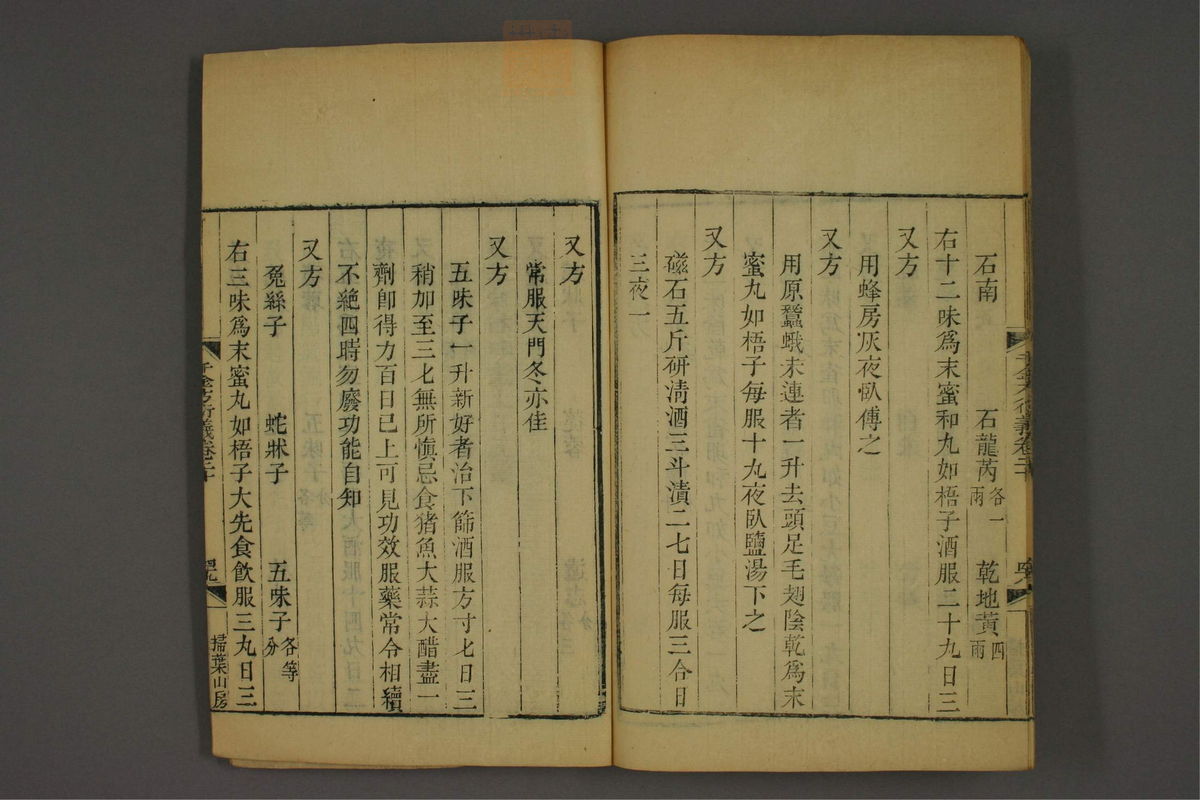 石南　石龍芮各一兩　乾地黃四兩
右十二味爲末蜜和丸如梧子酒服二十九日三
又方
用蜂房灰夜臥傅之
又方
用原蠶蛾未連者一升去頭足毛翅陰乾爲末
蜜丸如梧子每服十九夜臥鹽湯下之
又方
磁石五斤研淸酒三斗漬二七日每服三合日
三夜一
又方
常服天門冬亦佳
又方
五味子一升新好者治下篩酒服方寸七日三
稍加至三七無所愼忌食猪魚大蒜大醋盡一
劑卽得力百日已上可見功效服藥常令相續
不絶四時勿廢功能自知
又方
菟絲子　蛇牀子　五味子各等分
右三味爲末蜜丸如梧子大先食飮服三丸日三
千金方衍義卷二十
掃葉山房